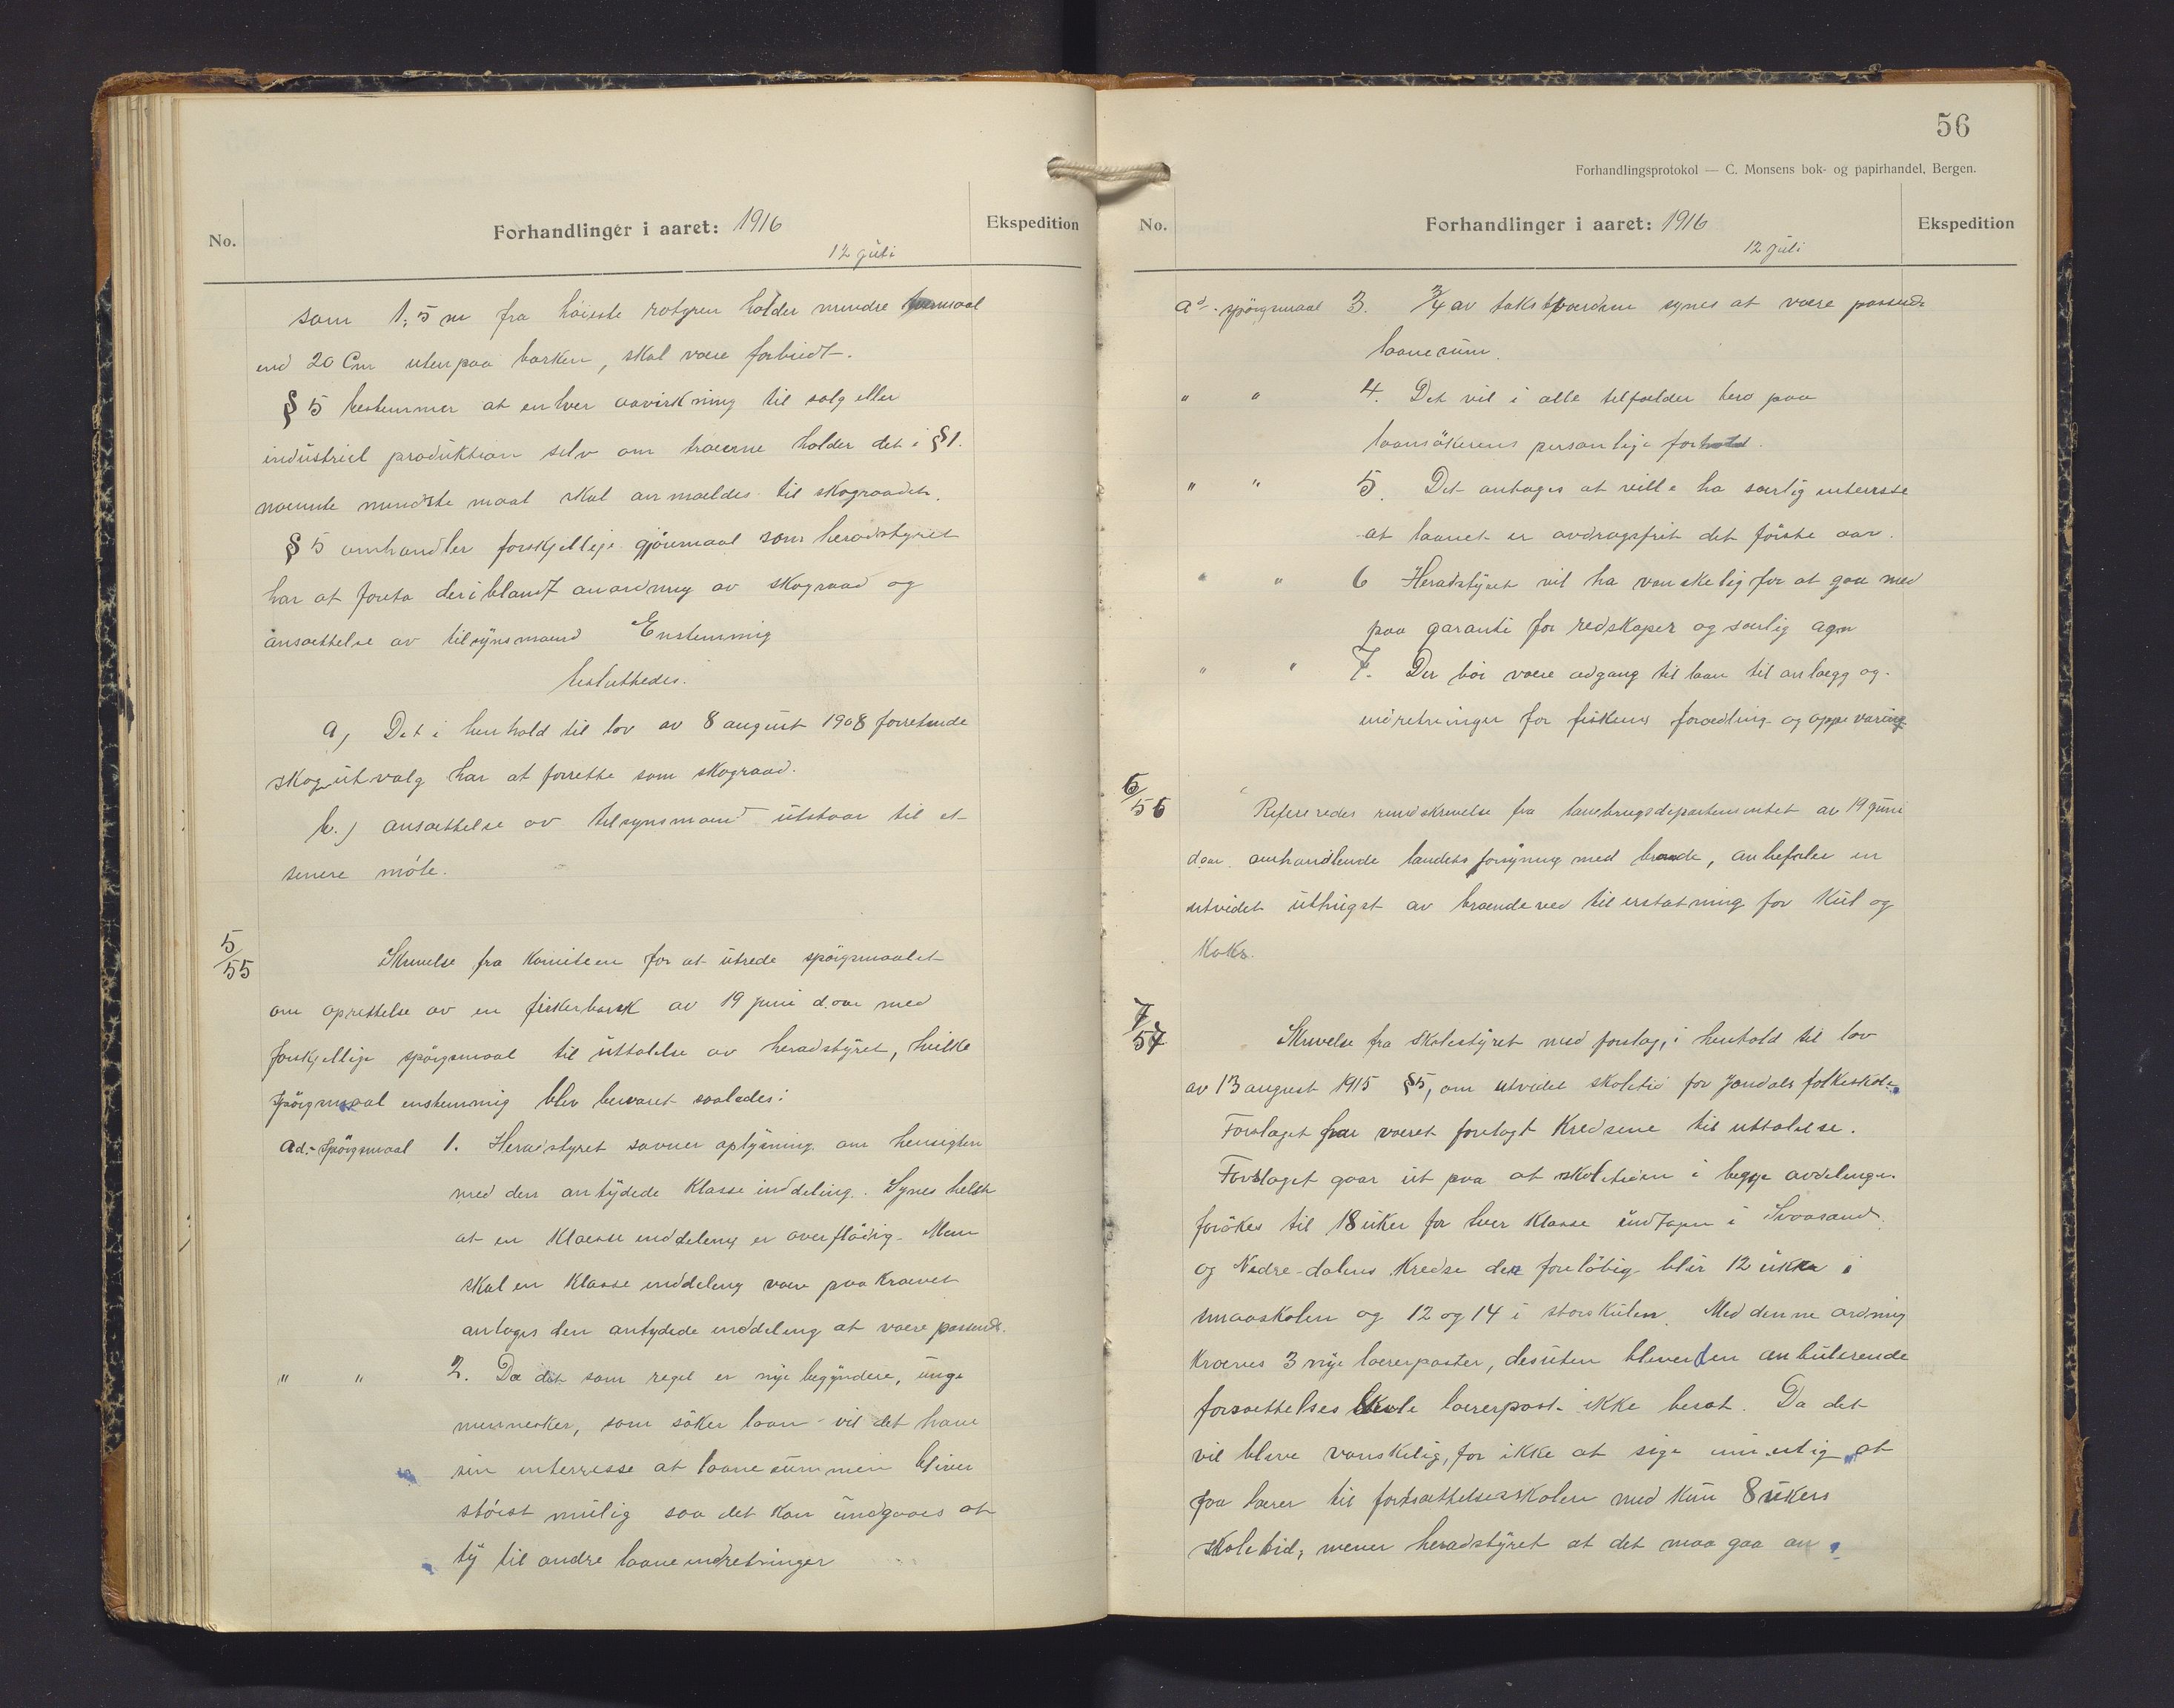 No.
Forhandlinger i aaret: 1916
12 juli
Ekspedition
som 1,5 m fra høieste rotgren holder mindre tvermaal
end 20 Cm utenpaa barken, skal være forbudt.
§ 5 bestemmer at enhver avvirkning til salg eller
industriel produktion selv om træerne holder det i §1.
nævnte mindste maal skal anmældes til skograadet.
§ 5 omhandler forskjellige gjøremaal som heradstyret
har at foreta deriblandt anordning av skograad og
ansættelse av tilsynsmand Enstemmig
besluttedes.
a, Det i henhold til lov av 8 august 1908 forretende
skogutvalg har at forrette som skograad.
b.) ansættelse av tilsynsmand utstaar til et
senere møte.
5/55
Skrivelse fra komiteen for at utrede spørgsmaalet
om oprettelse av en fiskerbank av 19 juni d.aar med
forskjellige spørgsmaal til uttalelse av heradstyret, hvilke
spørgsmaal enstemmig blev besvaret saaledes:
Ad.- Spørgsmaal 1. Heradstyret savner oplysning om hensigten
med den antydede Klasse inddeling. Synes helst
at en Klasse inddeling er overflødig. Men
skal en Klasse inddeling være paakrævet
antages den antydede inddeling at være passende.
" " 2. Da det som regel er nye begyndere, unge
mennesker, som søker laan vil det have
sin interresse at laanesummen bliver
størst mulig saa det kan undgaaes at
ty til andre laaneindretninger
56
Forhandlingsprotokol — C. Monsens bok- og papirhandel, Bergen.
No.
Forhandlinger i aaret: 1916
12 juli
Ekspedition
Ad.- spørgsmaal 3. 3/4 av takstværdien synes at være passende
laanesum.
" " 4. Det vil i alle tilfælder bero paa
laansøkerens personlige forhold.
" " 5. Det antages at ville ha særlig interesse
at laanet er avdragsfrit det første aar.
" " 6 Heradstyret vil ha vanskelig for at gaa med
paa garanti for redskaper og særlig agn
" " 7. Der bør være adgang til laan til anlægg og
indretninger for fiskens forædling og oppevaring
6/56
Refereredes rundskrivelse fra lanbrugsdepartementet av 19 juni
d.aar. omhandlende landets forsyning med brænde, anbefaler en
utvidet uthugst av brændeved til erstatning for Kul og
Koks.
7/57
Skrivelse fra Skolestyret med forslag, i henhold til lov
av 13 august 1915 §5, om utvidet skoletid for Jondals folkeskole.
Forslaget har været forelagt Kredsene til uttalelse.
Forslaget gaar ut paa at skoletiden i begge avdelinger
forøkes til 18 uker for hver Klasse undtagen i Svaasand
og Nedre-dalens Kredse der foreløbig blir 12 uker i
smaaskolen og 12 og 14 i storskulen. Med denne ordning
Kræves 3 nye lærerposter, desuten bliver den anbulerende
forsættelses skole lærerpost ikke besat. Da det
vil blive vanskelig, for ikke at sige umulig at
faa lærer til fortsættelsesskolen med kun 8 ukers
skoletid, mener heradstyret at det maa gaa an